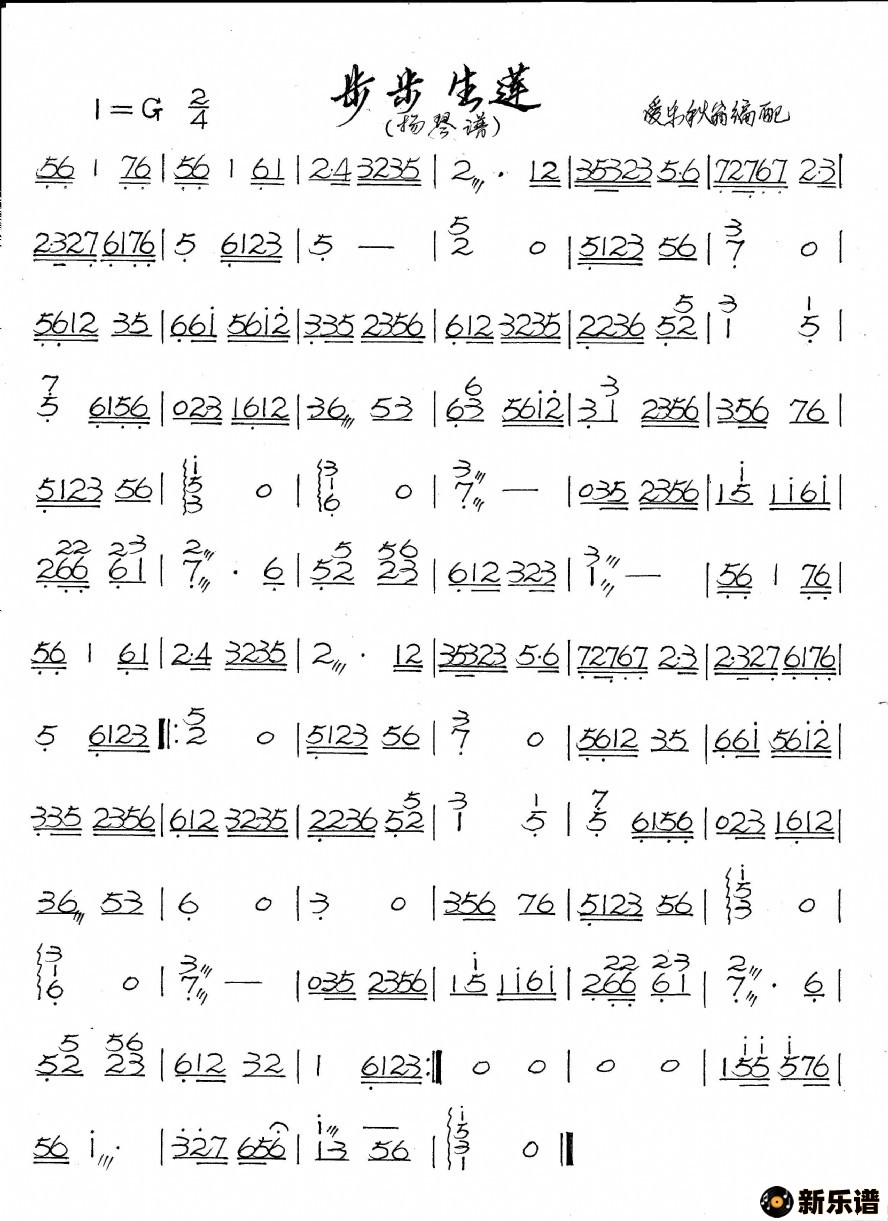 步步生莲
1=G 2/4
(扬琴谱)
爱乐秋翁编配
56 1 76 | 56 1 61 | 2·4 3235 | 2 · 12 | 35323 5·6 | 72767 2·3 |
2·327 6176 | 5 6123 | 5 — | 5 2 0 | 5123 56 | 3 7 0 |
5612 35 | 661 5612 | 335 2356 | 612 3235 | 2236 52 5 | 3 1 1 5 |
7 5 6156 | 023 1612 | 36 53 | 63 6 5612 | 31 3 2356 | 356 76 |
5123 56 | 1 5 3 0 | 3 1 6 0 | 3 7 — | 035 2356 | 15 1 1161 |
266 22 61 23 | 2 7 · 6 | 52 5 23 56 | 612 323 | 3 1 — | 56 1 76 |
56 1 61 | 2·4 3235 | 2 · 12 | 35323 5·6 | 72767 2·3 | 2·327 6176 |
5 6123 |: 5 2 0 | 5123 56 | 3 7 0 | 5612 35 | 661 5612 |
335 2356 | 612 3235 | 2236 52 5 | 3 1 1 5 | 7 5 6156 | 023 1612 |
36 53 | 6 0 | 3 0 | 356 76 | 5123 56 | 1 5 3 0 |
3 1 6 0 | 3 7 — | 035 2356 | 15 1 1161 | 266 22 61 23 | 2 7 · 6 |
52 5 23 56 | 612 32 | 1 6123 :| 0 0 | 0 0 | 155 11 576 1 |
56 1 · | 327 656 | 1 13 — 56 | 1 5 3 1 0 ‖
新乐谱